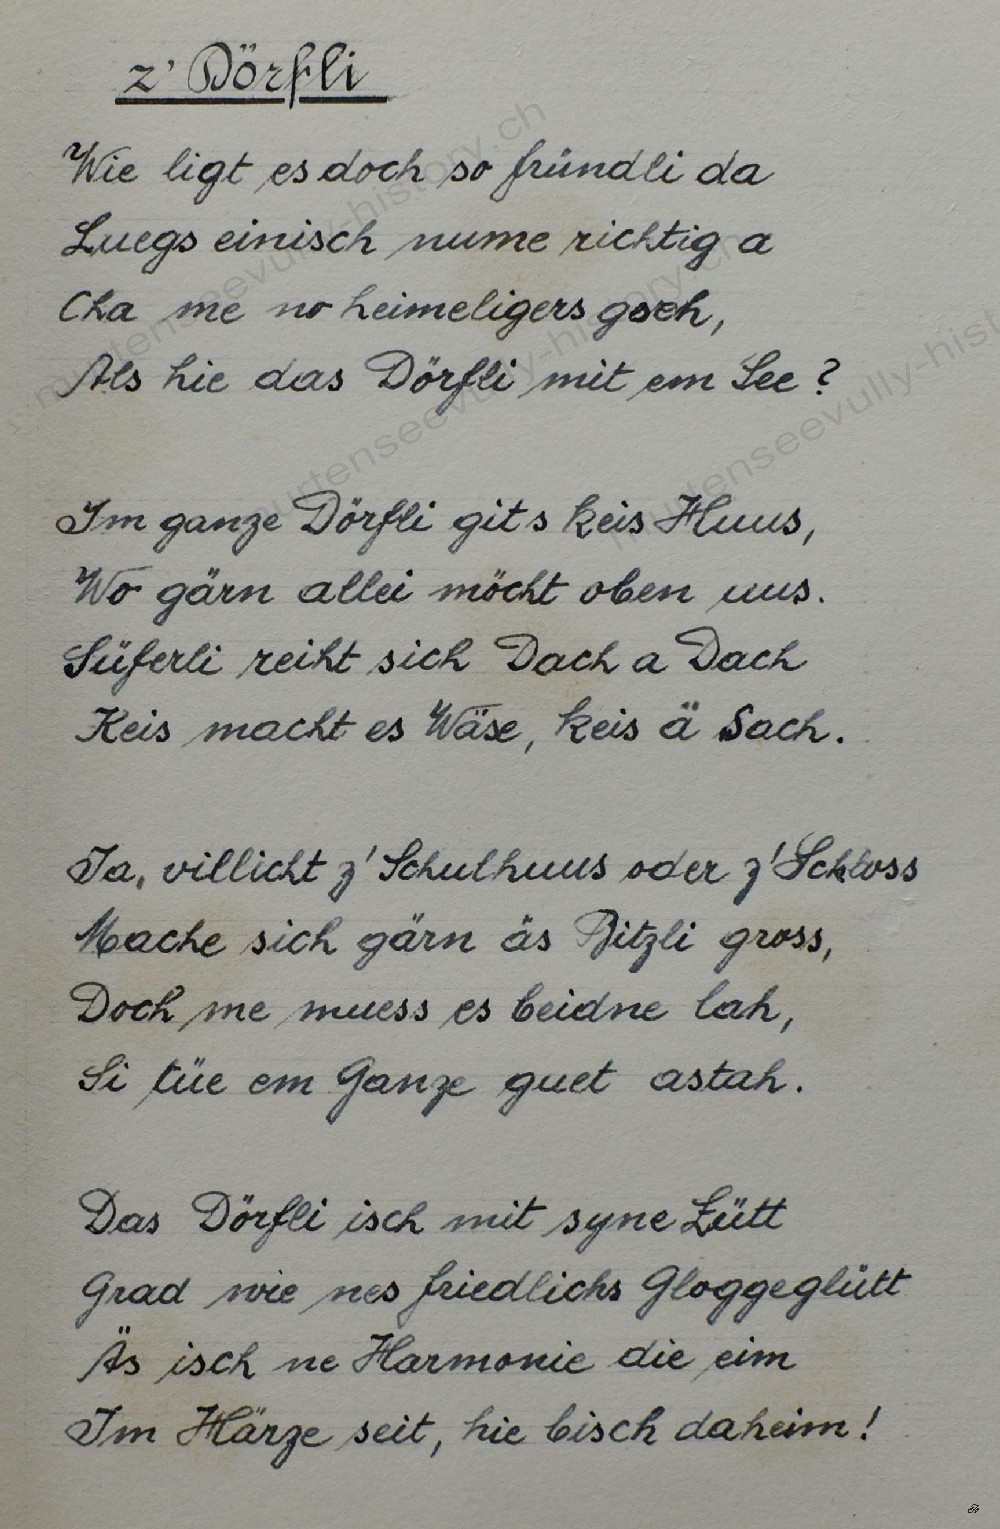 z' Dörfli
Wie ligt es doch so fründli da
Luegs einisch nume richtig a
Cha me no heimeligers gseh,
Als hie das Dörfli mit em See ?
Im ganze Dörfli gits keis Huus,
Wo gärn allei möcht oben uus.
Süferli reiht sich Dach a Dach
Keis macht es Wäse, keis ä Sach.
Ja, villicht z' Schulhuus oder z' Schloss
Mache sich gärn äs Bitzli gross,
Doch me muess es beidne lah,
Si tüe em Ganze guet astah.
Das Dörfli isch mit syne Lütt
Grad wie nes friedlichs Gloggeglütt
Äs isch ne Harmonie die eim
Im Härze seit, hie bisch daheim !
murtenseevully-history.ch
murtenseevully-history.ch
murtenseevully-hist